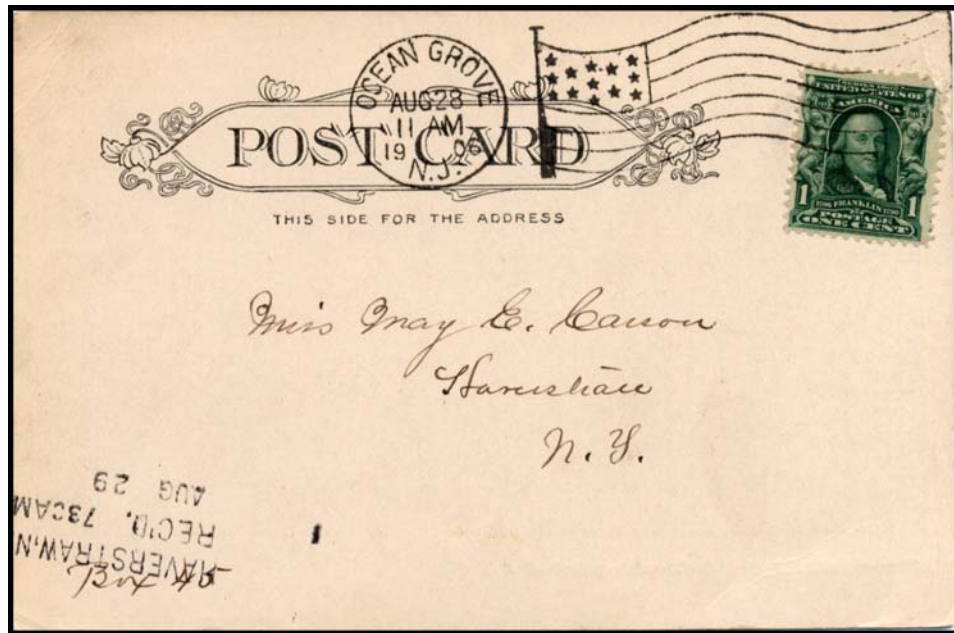 OCEAN GROVE
AUG 28
11 AM
1906
N.J.
POST CARD
THIS SIDE FOR THE ADDRESS
UNITED STATES OF
AMERICA
1 1
FRANKLIN
POSTAGE
ONE CENT
Miss May E. Carson
Haverstraw
N. Y.
HAVERSTRAW, N
REC'D. 730AM
AUG 29
Box 40